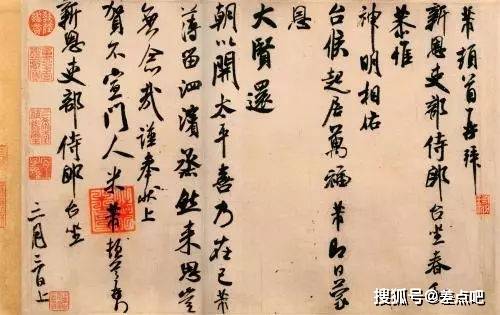 芾頓首再拜
新恩吏部侍郎台坐春
恭惟
神明相佑
台候起居萬福芾即日蒙
恩
大賢還
朝以開太平喜乃在己芾
薄留泗濱烝然來思豈
無念哉謹奉狀上
賀不宣門人米芾頓首
新恩吏部侍郎台坐
三月三日上
搜狐号@差点吧